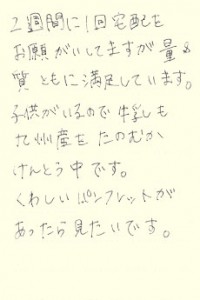 2週間に1回宅配を
お願いしてますが量&
質ともに満足しています。
子供がいるので牛乳も
九州産をたのむか
けんとう中です。
くわしいパンフレットが
あったら見たいです。